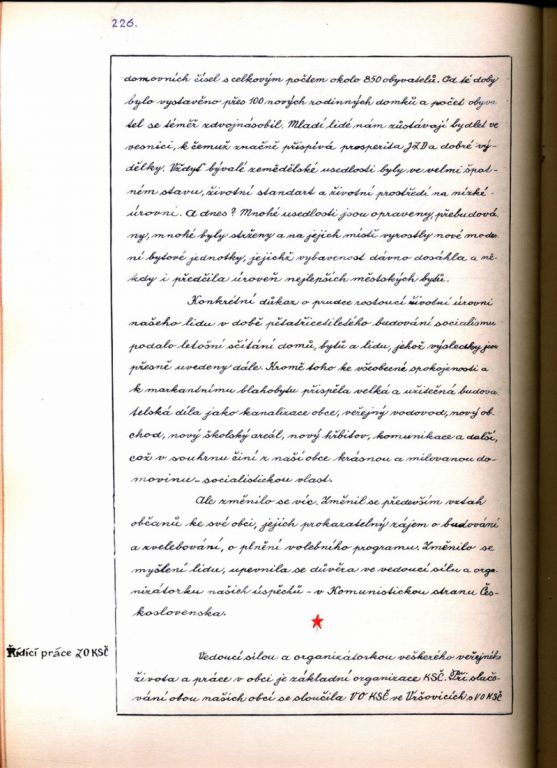 226.
domovních čísel s celkovým počtem okolo 850 obyvatelů. Od té doby
bylo vystavěno přes 100 nových rodinných domků a počet obyva
tel se téměř zdvojnásobil. Mladí lidé nám zůstávají bydlet ve
vesnici, k čemuž značně přispívá prosperita JZD a dobré vý-
dělky. Vždyť bývalé zemědělské usedlosti byly ve velmi špat-
ném stavu, životní standart a životní prostředí na nízké
úrovni. A dnes? Mnohé usedlosti jsou opraveny, přebudová
ny, mnohé byly strženy a na jejich místě vyrostly nové moder
ní bytové jednotky, jejichž vybavenost dávno dosáhla a ně-
kdy i předčila úroveň nejlepších městských bytů.
Konkrétní důkaz o prudce rostoucí životní úrovni
našeho lidu v době pětatřicetiletého budování socialismu
podalo letošní sčítání domů, bytů a lidu, jehož výsledky jsou
přesně uvedeny dále. Kromě toho ke všeobecné spokojenosti a
k markantnímu blahobytu přispěla velká a užitečná budova
telská díla jako kanalizace obce, veřejný vodovod, nový ob
chod, nový školský areál, nový hřbitov, komunikace a další,
což v souhrnu činí z naší obce krásnou a milovanou do-
movinu - socialistickou vlast.
Ale změnilo se víc. Změnil se především vztah
občanů ke své obci, jejich prokazatelný zájem o budování
a zvelebování, o plnění volebního programu. Změnilo se
myšlení lidu, upevnila se důvěra ve vedoucí sílu a orga-
nizátorku našich úspěchů - v Komunistickou stranu Čes-
koslovenska.
Řídící práce ZO KSČ
Vedoucí silou a organizátorkou veškerého veřejného
života a práce v obci je základní organizace KSČ. Při slučo-
vání obou našich obcí se sloučila VO KSČ ve Vršovicích s VO KSČ